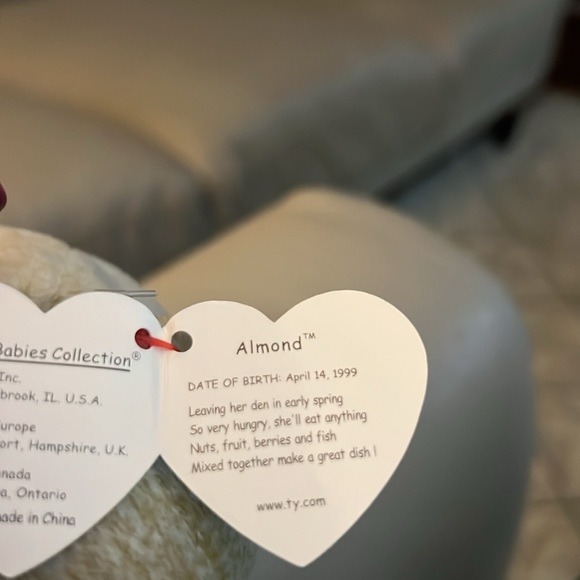 Babies Collection®
Inc.
brook, IL. U.S.A.
urope
ort, Hampshire, U.K.
nada
a, Ontario
ade in China
Almond™
DATE OF BIRTH: April 14, 1999
Leaving her den in early spring
So very hungry, she'll eat anything
Nuts, fruit, berries and fish
Mixed together make a great dish !
www.ty.com